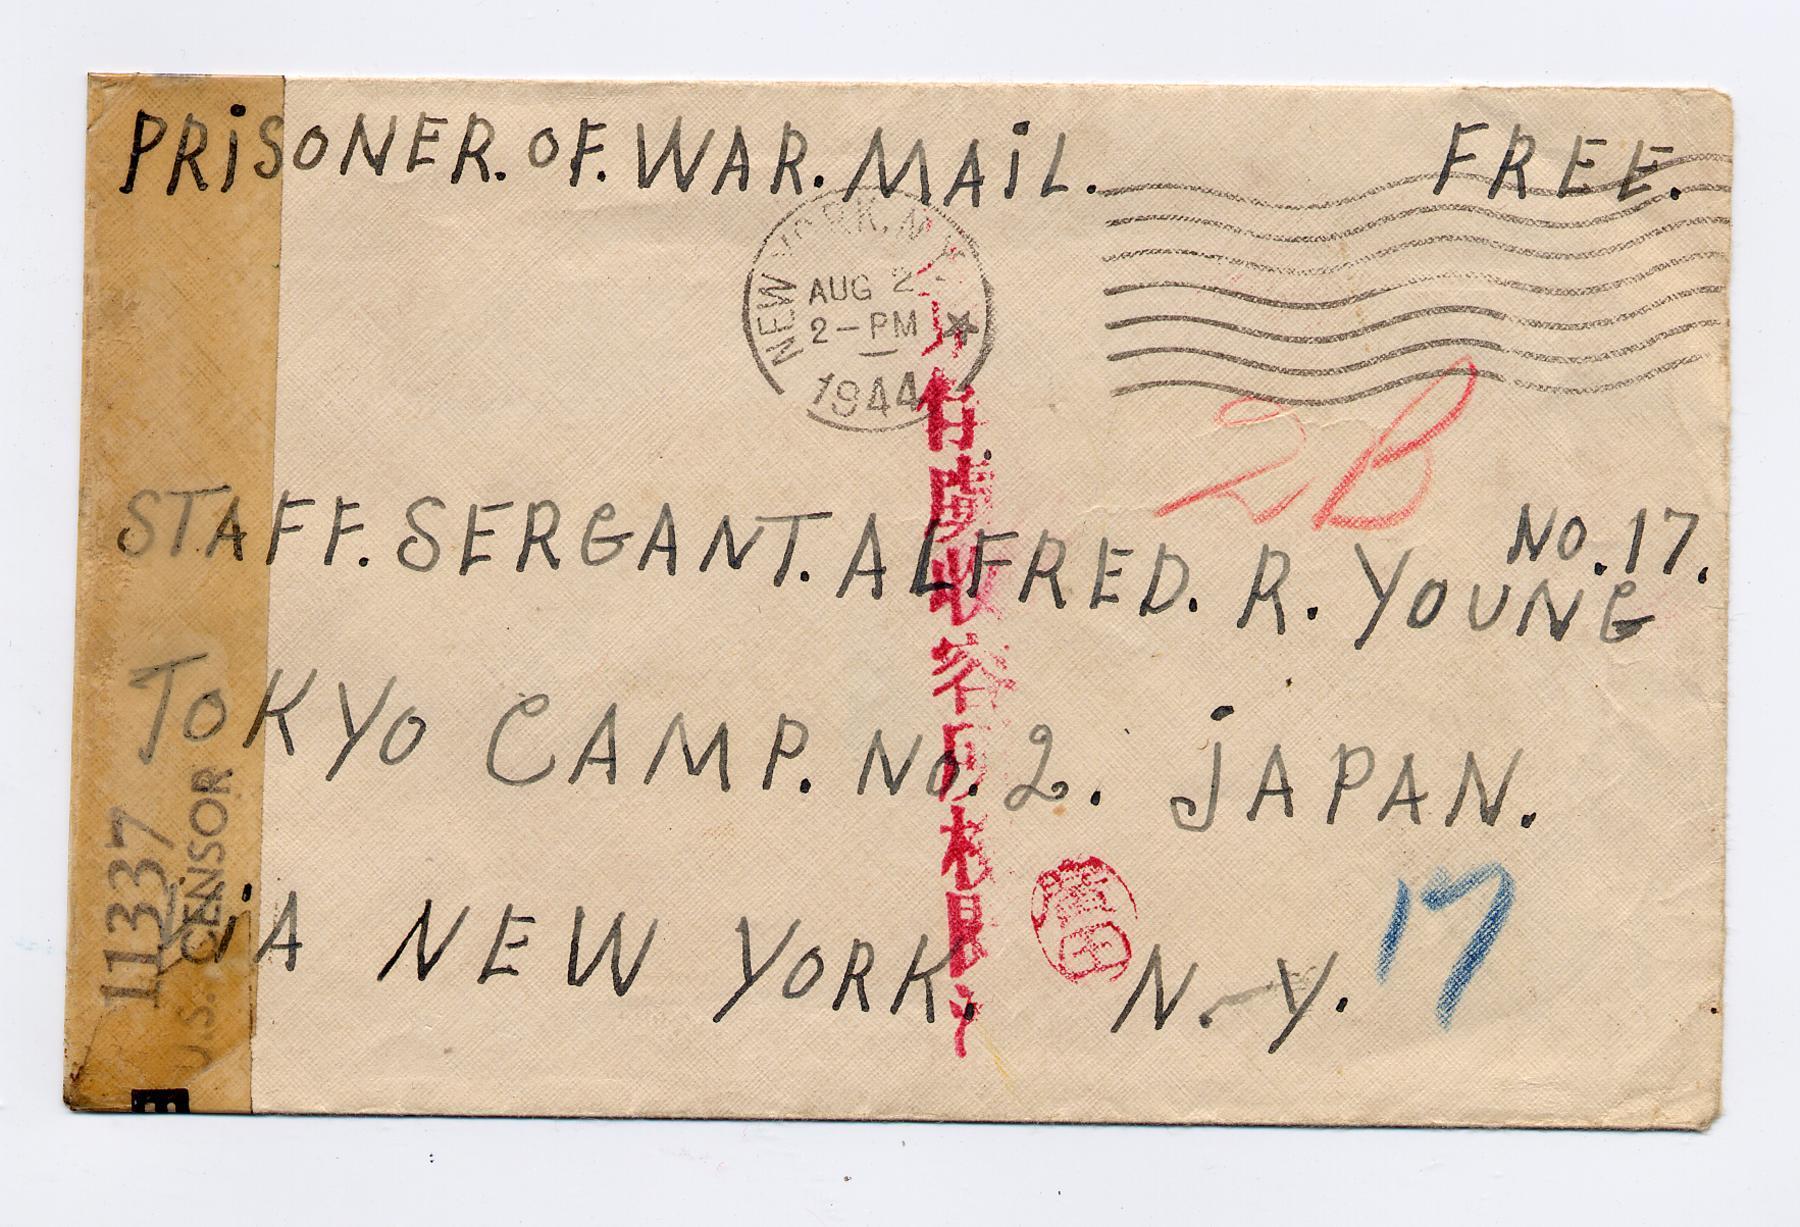 PRiSONER. OF. WAR. MAiL. FREE.
NEW YORK, N.Y.
AUG 2
2-PM
1944
2B
NO. 17.
STAFF. SERGANT. ALFRED. R. YOUNG
TOKYO CAMP. No. 2. JAPAN.
ViA NEW YORK. N.Y.
17
11337
U.S. CENSOR
收容所